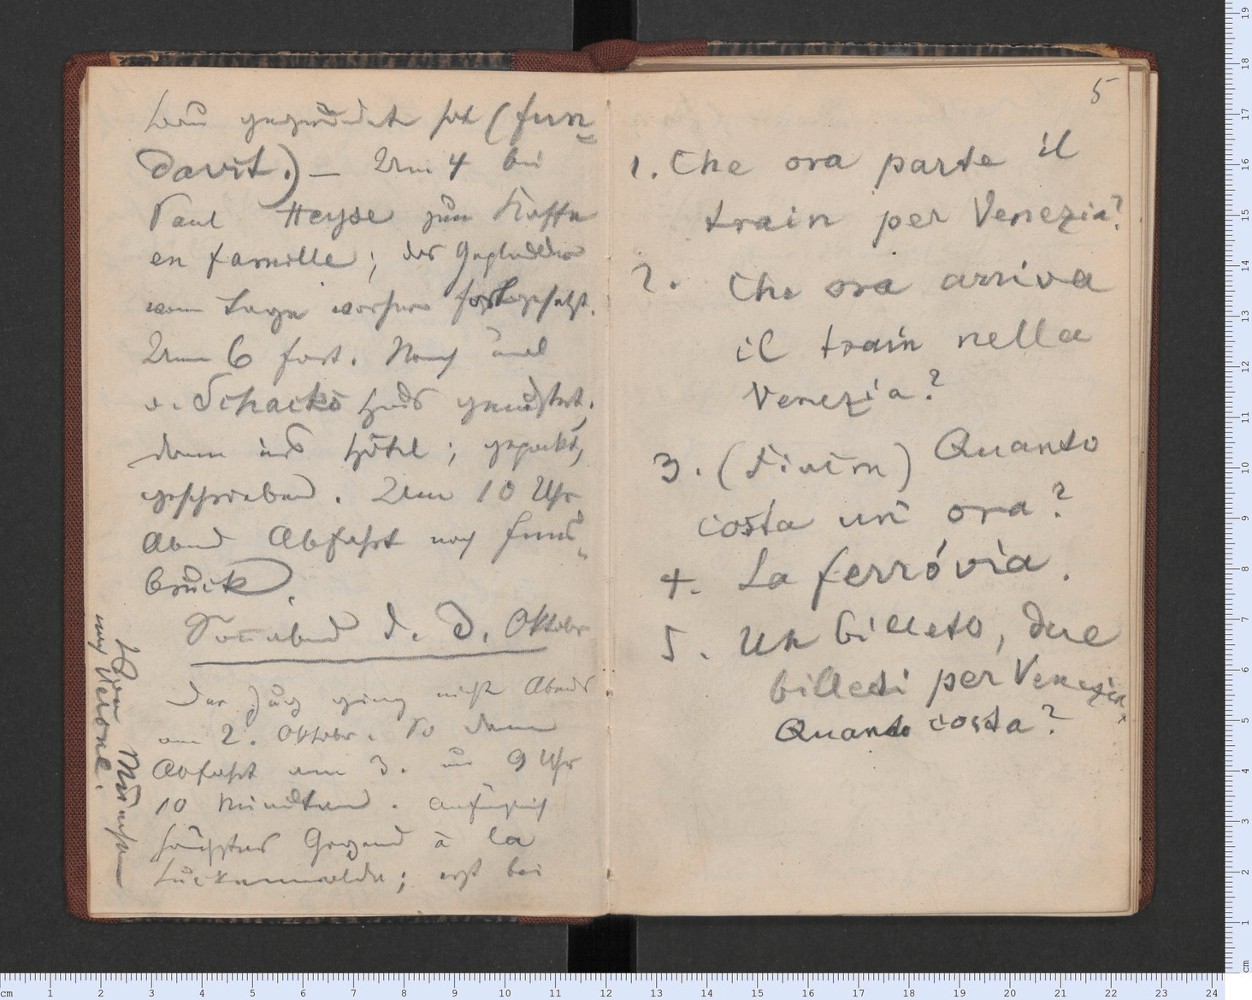 bau gegründet hat (fun-
davit.) – Um 4 bei
Paul Heyse zum Kaffe
en famille; das Geplauder
vom Tage vorher fortgesetzt.
Um 6 fort. Noch mal
v. Schacks Haus gemustert,
dann ins Hôtel; gepackt,
geschrieben. Um 10 Uhr
Abend Abfahrt nach Inns-
bruck.
Sonnabend d. 3. Oktober
Der Zug ging nicht Abends
am 2. Oktober. So denn
Abfahrt am 3. um 9 Uhr
10 Minuten. Anfänglich
Gegend à la
Luckenwalde; erst bei
Von München
nach Verona.
5
1. Che ora parte il
train per Venezia?
2. Che ora arriva
il train nella
Venezia?
3. (Fiácre) Quanto
costa un ora?
4. La ferróvia.
5. Un billeto, due
billeti per Venezia,
Quanto costa?